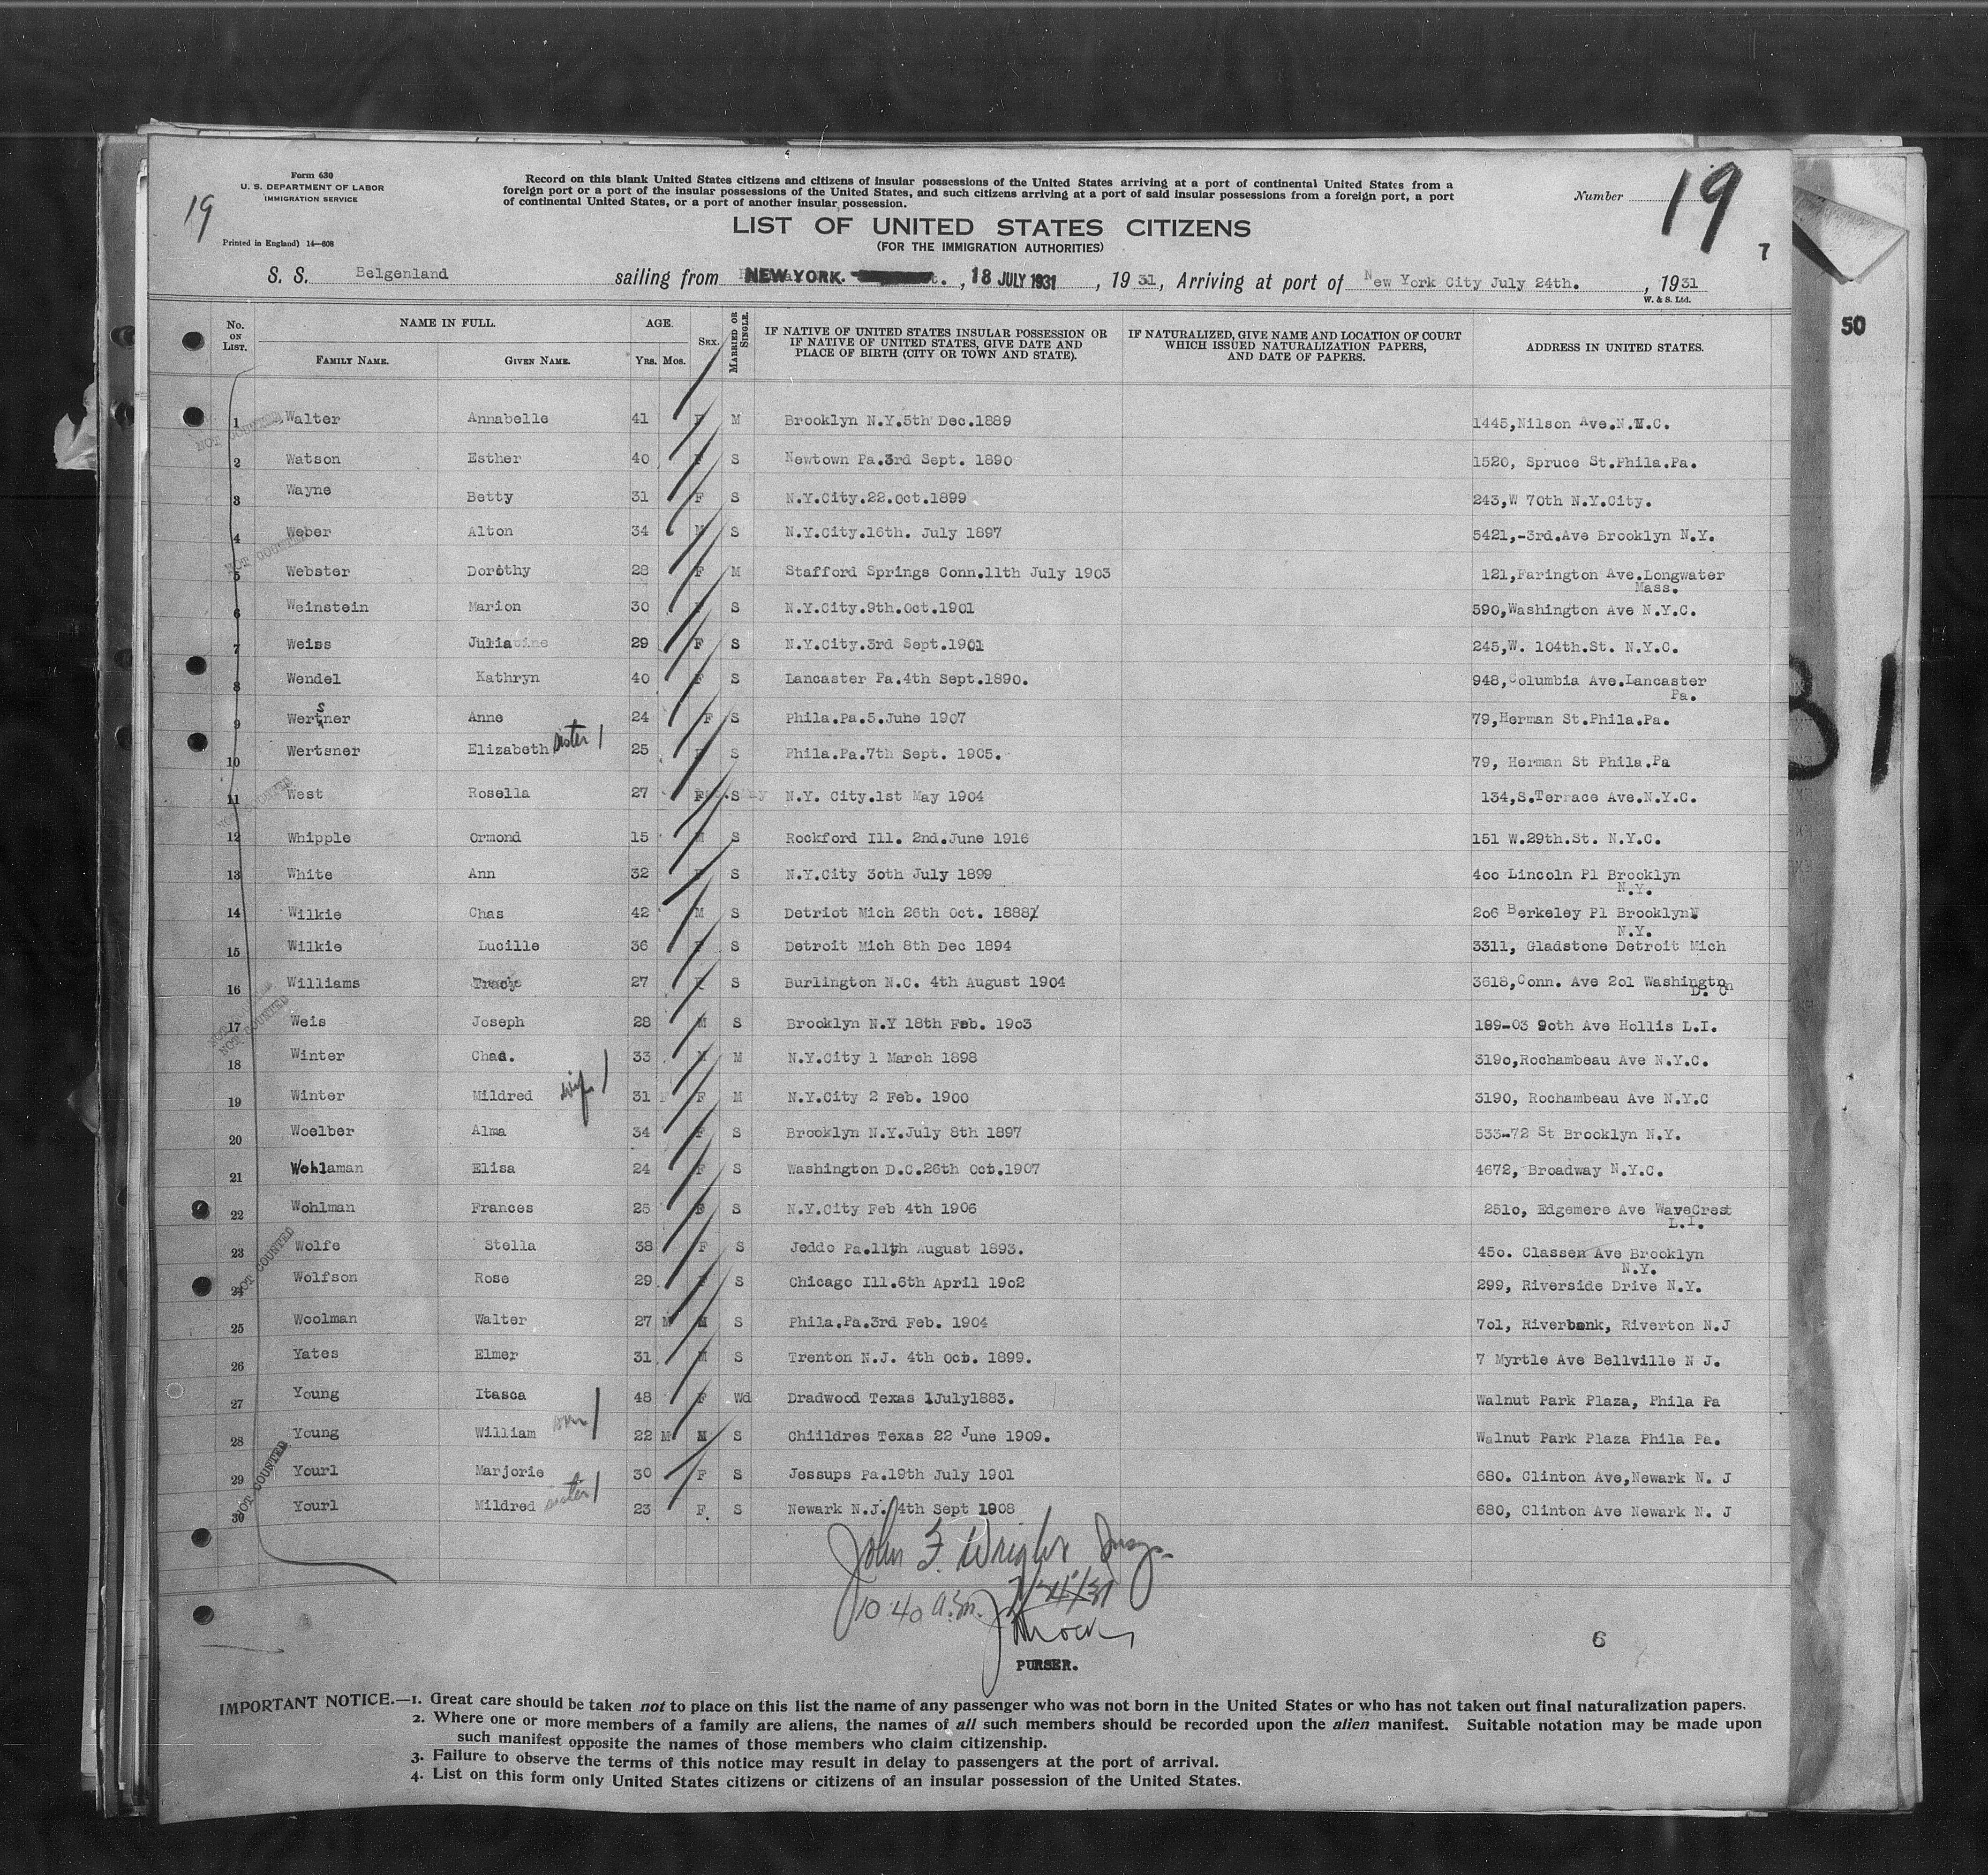 Form 630
U. S. DEPARTMENT OF LABOR
IMMIGRATION SERVICE
19
Printed in England) 14—608
Record on this blank United States citizens and citizens of insular possessions of the United States arriving at a port of continental United States from a
foreign port or a port of the insular possessions of the United States, and such citizens arriving at a port of said insular possessions from a foreign port, a port
of continental United States, or a port of another insular possession.
Number 19
7
LIST OF UNITED STATES CITIZENS
(FOR THE IMMIGRATION AUTHORITIES)
S. S. Belgenland sailing from NEW YORK. , 18 JULY 1931 , 19 31, Arriving at port of New York City July 24th. , 19 31
W. & S. Ltd.
50
No. ON LIST. NAME IN FULL. FAMILY NAME. GIVEN NAME. AGE. YRS. MOS. SEX. MARRIED OR SINGLE. IF NATIVE OF UNITED STATES INSULAR POSSESSION OR IF NATIVE OF UNITED STATES, GIVE DATE AND PLACE OF BIRTH (CITY OR TOWN AND STATE). IF NATURALIZED, GIVE NAME AND LOCATION OF COURT WHICH ISSUED NATURALIZATION PAPERS, AND DATE OF PAPERS. ADDRESS IN UNITED STATES.
1 Walter Annabelle 41 F M Brooklyn N.Y.5th Dec.1889 1445,Nilson Ave.N.Y.C.
2 Watson Esther 40 F S Newtown Pa.3rd Sept. 1890 1520, Spruce St.Phila.Pa.
3 Wayne Betty 31 F S N.Y.City.22.oct.1899 243,W 70th N.Y.City.
4 Weber Alton 34 M S N.Y.City.16th. July 1897 5421,-3rd.Ave Brooklyn N.Y.
5 Webster Dorothy 28 F M Stafford Springs Conn.11th July 1903 121,Farington Ave.Longwater
Mass.
6 Weinstein Marion 30 F S N.Y.City.9th.oct.1901 590,Washington Ave N.Y.C.
7 Weiss Julia 29 F S N.Y.City.3rd Sept.1901 245,W. 104th.St. N.Y.C.
8 Wendel Kathryn 40 F S Lancaster Pa.4th Sept.1890. 948,Columbia Ave.Lancaster
Pa.
9 Wertsner Anne 24 F S Phila.Pa.5.June 1907 79,Herman St.Phila.Pa.
10 Wertsner Elizabeth sister 25 F S Phila.Pa.7th Sept. 1905. 79, Herman St Phila.Pa
11 West Rosella 27 F S N.Y. City.1st May 1904 134,S.Terrace Ave.N.Y.C.
12 Whipple Ormond 15 M S Rockford Ill. 2nd.June 1916 151 W.29th.St. N.Y.C.
13 White Ann 32 F S N.Y.City 3oth July 1899 4oo Lincoln Pl Brooklyn
N.Y.
14 Wilkie Chas 42 M S Detriot Mich 26th Oct. 1888 2o6 Berkeley Pl Brooklyn
N.Y.
15 Wilkie Lucille 36 F S Detroit Mich 8th Dec 1894 3311, Gladstone Detroit Mich
16 Williams Tracy 27 F S Burlington N.C. 4th August 1904 3618,Conn. Ave 2o1 Washington
D. C
17 Weis Joseph 28 M S Brooklyn N.Y 18th Feb. 19o3 189-03 9oth Ave Hollis L.I.
18 Winter Chas. 33 M M N.Y.City 1 March 1898 319o,Rochambeau Ave N.Y.C.
19 Winter Mildred wife 31 F M N.Y.City 2 Feb. 1900 3190, Rochambeau Ave N.Y.C
20 Woelber Alma 34 F S Brooklyn N.Y.July 8th 1897 533-72 St Brooklyn N.Y.
21 Wohlaman Elisa 24 F S Washington D.C.26th Oct.1907 4672, Broadway N.Y.C.
22 Wohlman Frances 25 F S N.Y.City Feb 4th 1906 251o, Edgemere Ave WaveCrest
L.I.
23 Wolfe Stella 38 F S Jeddo Pa.11th August 1893. 45o. Classen Ave Brooklyn
N.Y.
24 Wolfson Rose 29 F S Chicago Ill.6th April 19o2 299, Riverside Drive N.Y.
25 Woolman Walter 27 M M S Phila.Pa.3rd Feb. 1904 7o1, Riverbank, Riverton N.J
26 Yates Elmer 31 M S Trenton N.J. 4th Oct. 1899. 7 Myrtle Ave Bellville N J.
27 Young Itasca 48 F Wd Dradwood Texas 1July1883. Walnut Park Plaza, Phila Pa
28 Young William son 22 M M S Chiildres Texas 22 June 1909. Walnut Park Plaza Phila Pa.
29 Yourl Marjorie 30 F S Jessups Pa.19th July 1901 680. Clinton Ave,Newark N. J
30 Yourl Mildred sister 23 F. S Newark N.J. 4th Sept 1908 680, Clinton Ave Newark N. J
NOT COUNTED
NOT COUNTED
NOT COUNTED
NOT COUNTED
NOT COUNTED
NOT COUNTED
NOT COUNTED
John F. Wright Insp.
7/24/31
10:40 a.m.
PURSER.
6
IMPORTANT NOTICE.—1. Great care should be taken not to place on this list the name of any passenger who was not born in the United States or who has not taken out final naturalization papers.
2. Where one or more members of a family are aliens, the names of all such members should be recorded upon the alien manifest. Suitable notation may be made upon
such manifest opposite the names of those members who claim citizenship.
3. Failure to observe the terms of this notice may result in delay to passengers at the port of arrival.
4. List on this form only United States citizens or citizens of an insular possession of the United States.